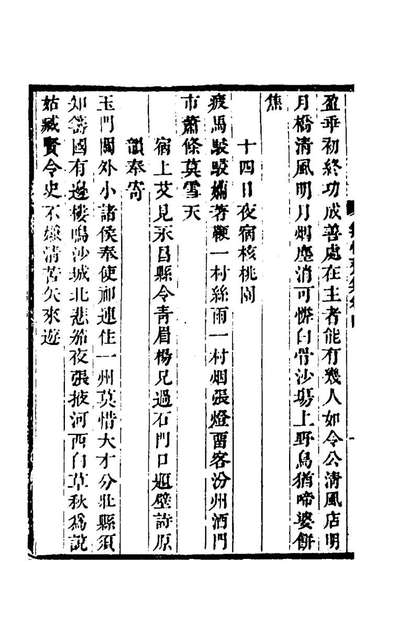 盈乖初終功成善處在主者能有幾人如令公清風店明
月橋清風明月烟塵消可憐白骨沙場上野鳥猶啼婆餅
焦
十四日夜宿核桃園
疲馬駸駸嬾著鞭一村絲雨一村烟張燈畱客汾州酒門
市蕭條莫雪天
宿上艾見永昌縣令青眉楊兄過石門口題壁詩原
韻奉寄
玉門關外小諸侯奉使祁連住一州莫惜大才分壯縣須
知舊國有邊樓鳴沙城北悲笳夜張掖河西白草秋為說
姑臧賢令史不嫌清苦矢來遊